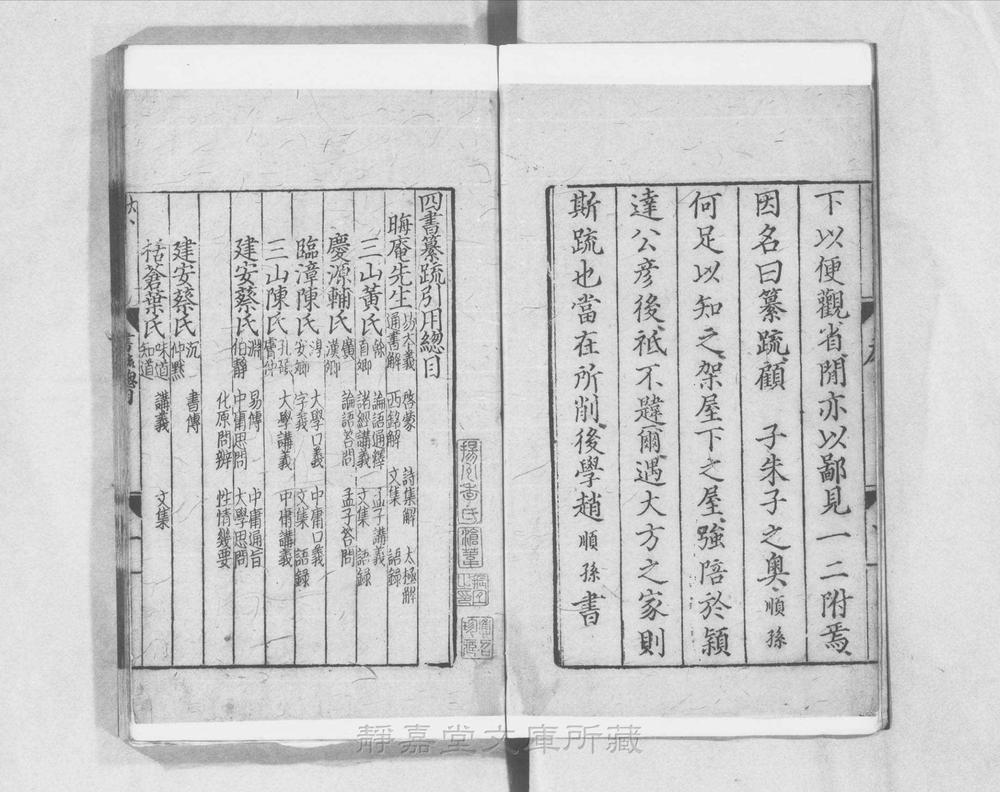 下以便觀省閒亦以鄙見一二附焉
因名曰纂疏顧　子朱子之奧順孫
何足以知之架屋下之屋強陪於穎
達公彥後祇不韙爾遇大方之家則
斯疏也當在所削後學趙順孫書
四書纂疏引用總目
晦庵先生　易本義　啓蒙　詩集解　太極解
通書解　西銘解　文集　語錄
三山黃氏　榦　直卿　論語通釋　孟子講義
諸經講義　文集　語錄
慶源輔氏　廣　漢卿　論語荅問　孟子荅問
臨漳陳氏　淳　安卿　大學口義　中庸口義
字義　文集　語錄
三山陳氏　孔碩　膚仲　大學講義　中庸講義
建安蔡氏　淵　伯靜　易傳　中庸通旨
中庸思問　大學思問
化原問辨　性情幾要
建安蔡氏　沉　仲默　書傳
括蒼葉氏　味道　知道　講義　文集
靜嘉堂文庫所藏